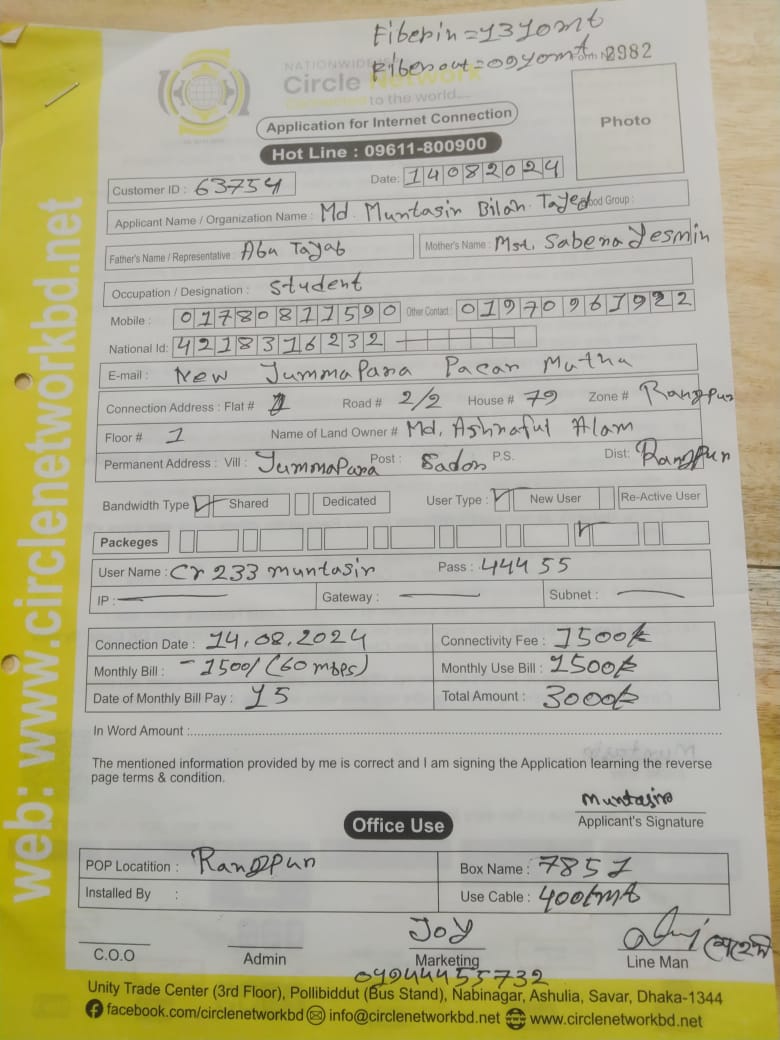 Fiber in = 1310mt
Fiber out = 0910mt
Form No 2982
NATIONWIDE
Circle Network
Connected to the world...
Application for Internet Connection
Hot Line : 09611-800900
Photo
Customer ID : 63754 Date: 14082024
Applicant Name / Organization Name : Md Muntasir Bilah Tayed Blood Group :
Father's Name / Representative : Abu Tayab Mother's Name : Mst. Sabena Yesmin
Occupation / Designation : student
Mobile : 01780811590 Other Contact : 01970963922
National Id: 4218316232
E-mail : New JummaPara Pacar Matha
Connection Address : Flat # 1 Road # 2/2 House # 79 Zone # Rangpur
Floor # 1 Name of Land Owner # Md. Ashraful Alam
Permanent Address : Vill : JummaPara Post : Sador P.S. Dist: Rangpur
Bandwidth Type Shared Dedicated User Type : New User Re-Active User
Packeges
User Name : Cr 233 muntasir Pass : 444 55
IP : Gateway : Subnet :
Connection Date : 14.08.2024 Connectivity Fee : 1500/-
Monthly Bill : 1500/ (60 mbps) Monthly Use Bill : 1500/-
Date of Monthly Bill Pay : 15 Total Amount : 3000/-
In Word Amount :
The mentioned information provided by me is correct and I am signing the Application learning the reverse
page terms & condition.
Muntasir
Applicant's Signature
Office Use
POP Locatition : Rangpur Box Name : 7851
Installed By : Use Cable : 400/mt
JoY
C.O.O Admin Marketing Line Man
01944455732
Unity Trade Center (3rd Floor), Pollibiddut (Bus Stand), Nabinagar, Ashulia, Savar, Dhaka-1344
facebook.com/circlenetworkbd info@circlenetworkbd.net www.circlenetworkbd.net
web: www.circlenetworkbd.net